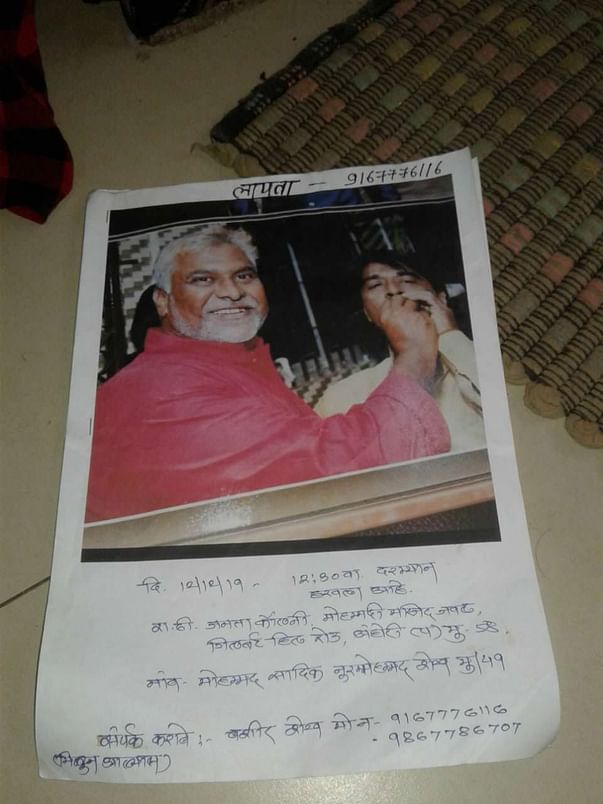 लापता -- 9167776116
दि. 12/12/19 - 12:30 वा. दरम्यान
हरवला आहे.
रा.ठी. जनता कॉलनी, मोहम्मदी मस्जिद जवळ,
गिलबर्ट हिल रोड, अंधेरी (प) मु - 58.
नांव - मोहम्मद सादिक नुरमोहम्मद शेख मु/49
संपर्क करावे :- बशीर शेख मो न - 9167776116
9867786707
(मिळुन आल्यास)